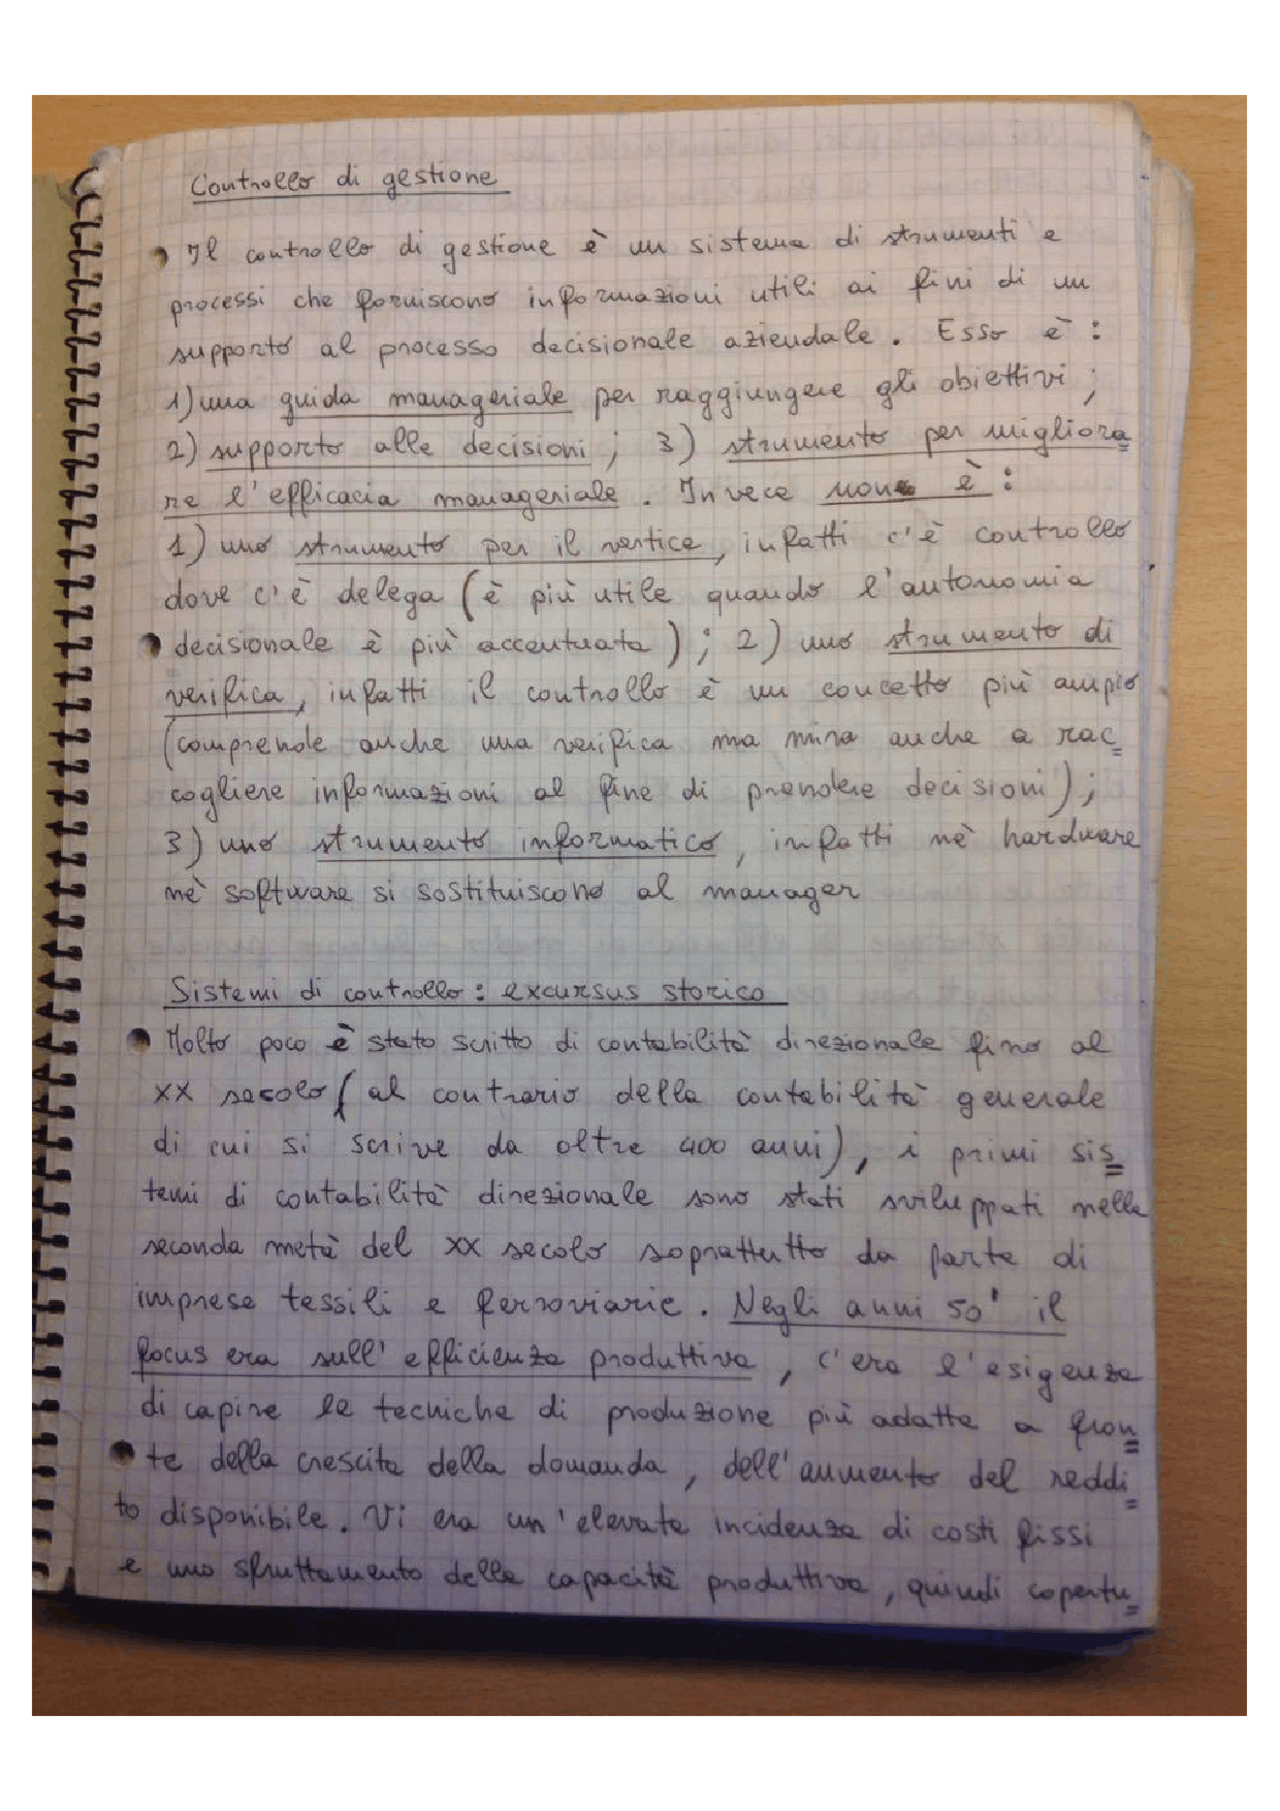 Controllo di gestione
Il controllo di gestione è un sistema di strumenti e
processi che forniscono informazioni utili ai fini di un
supporto al processo decisionale aziendale. Esso è:
1) una guida manageriale per raggiungere gli obiettivi;
2) supporto alle decisioni; 3) strumento per migliora
re l'efficacia manageriale. Invece non è:
1) uno strumento per il vertice, infatti c'è controllo
dove c'è delega (è più utile quando l'autonomia
decisionale è più accentuata); 2) uno strumento di
verifica, infatti il controllo è un concetto più ampio
(comprende anche una verifica ma mira anche a rac=
cogliere informazioni al fine di prendere decisioni);
3) uno strumento informatico, infatti nè hardware
nè software si sostituiscono al manager
Sistemi di controllo: excursus storico
Molto poco è stato scritto di contabilità direzionale fino al
XX secolo (al contrario della contabilità generale
di cui si scrive da oltre 400 anni), i primi sis=
temi di contabilità direzionale sono stati sviluppati nella
seconda metà del XX secolo soprattutto da parte di
imprese tessili e ferroviarie. Negli anni 50' il
focus era sull'efficienza produttiva, c'era l'esigenza
di capire le tecniche di produzione più adatte a fron=
te della crescita della domanda, dell'aumento del reddi=
to disponibile. Vi era un'elevata incidenza di costi fissi
e uno sfruttamento della capacità produttiva, quindi copertu=